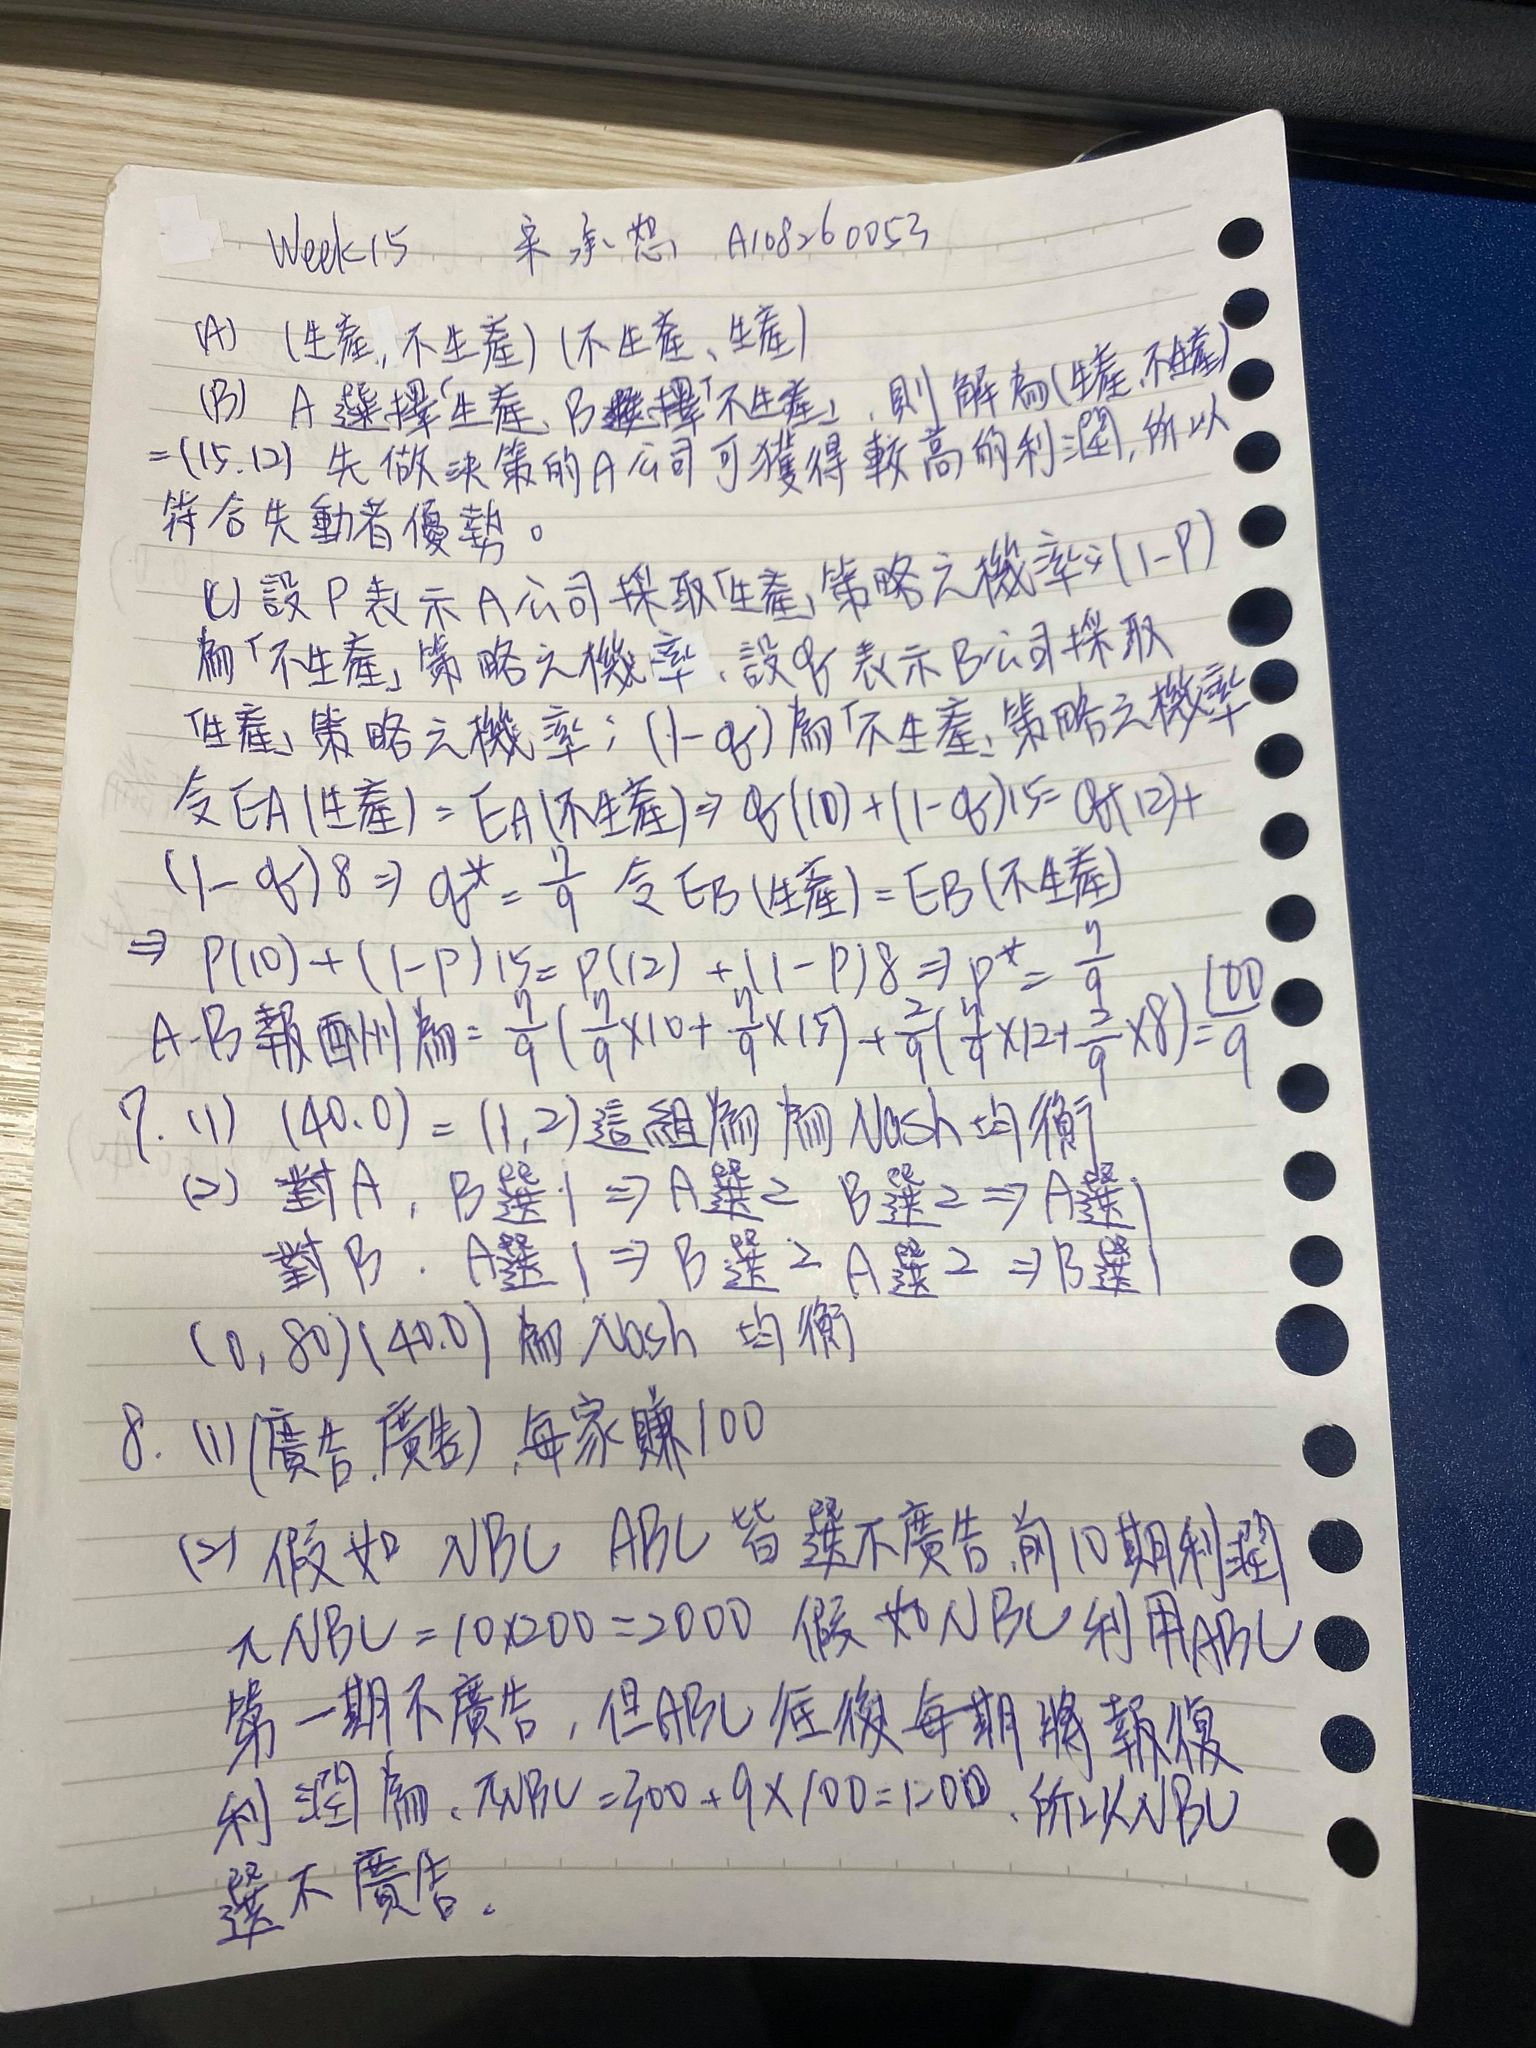 Week15 宋承恕 A108260053
(A) (生產,不生產) (不生產、生產)
(B) A選擇「生產、B選擇「不生產」,則解為(生產,不生產)
=(15.12) 先做決策的A公司可獲得較高的利潤,所以
符合先動者優勢。
(C) 設P表示A公司採取「生產」策略之機率;(1-P)
為「不生產」策略之機率,設q表示B公司採取
「生產」策略之機率;(1-q)為「不生產」策略之機率
令EA(生產)=EA(不生產)⇒ q(10)+(1-q)15=q(12)+
(1-q)8⇒ q*=7/9 令EB(生產)=EB(不生產)
⇒ P(10)+(1-P)15=P(12)+(1-P)8⇒P*=7/9
A-B報酬州為=7/9(7/9×10+7/9×15)+2/9(7/9×12+2/9×8)=100/9
7. (1) (40.0)=(1,2)這組為為Nash均衡
(2) 對A, B選1⇒A選2 B選2⇒A選1
對B. A選1⇒B選2 A選2⇒B選1
(0,80)(40.0)為Nash 均衡
8. (1)(廣告,廣告),每家賺100
(2) 假如 NBC ABC 皆選不廣告,前10期利潤
πNBC=10×200=2000 假如NBC利用ABC
第一期不廣告,但ABC往後每期將報復
利潤為、πNBC=300+9×100=1200、所以NBC
選不廣告.